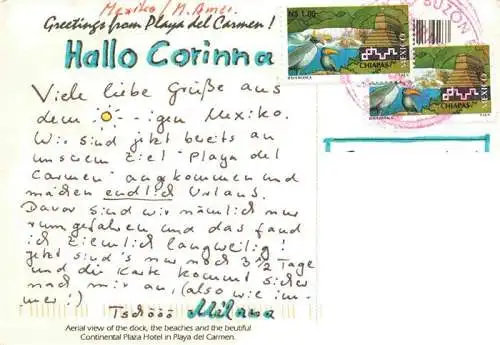 Mexiko/M.Amer.
Greetings from Playa del Carmen!
Hallo Corinna
Viele liebe Grüße aus
dem -igen Mexiko.
Wir sind jetzt bereits an
unserem Ziel "Playa del
Carmen" angekommen und
machen endlich Urlaub.
Davor sind wir nämlich nur
rumgefahren und das fand
ich ziemlich langweilig!
Jetzt sind's nur noch 3 1/2 Tage
und die Karte kommt sicher
nach mir an, (also wie im-
mer!)
Tschööö Milena
Aerial view of the dock, the beaches and the beutiful
Continental Plaza Hotel in Playa del Carmen.
N$ 1.80
CHIAPAS
MEXICO
CHIAPAS
MEXICO
BUZON